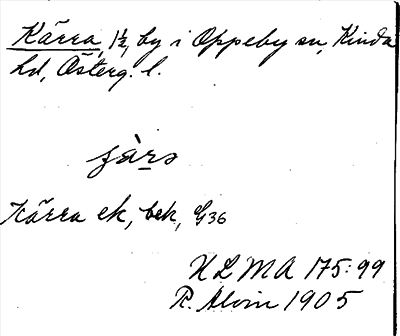 Kärra, 1½, by i Oppeby sn, Kinda
hd, Österg. l.
Kärra ek, bek, G36
ULMA 175:99
R. Alvin 1905